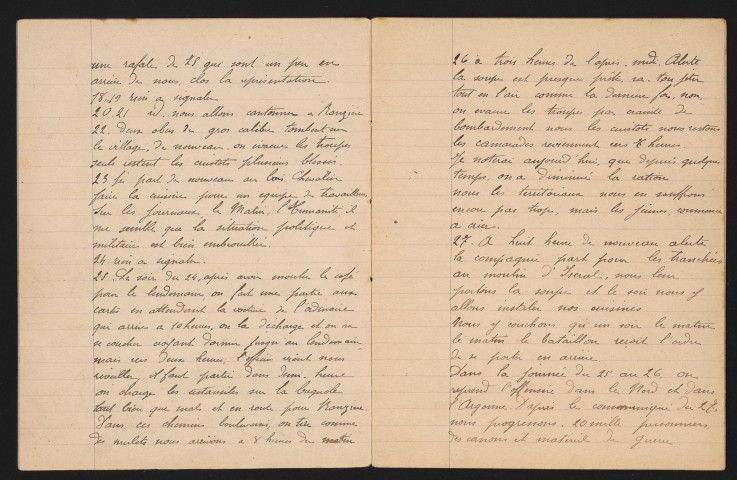 une rafale de 75 qui sont un peu en
arrière de nous, clos la representation.
18,19 rien a signaler
20.21 id. nous allons cantonner a Ranzine
22. Deux obus de gros calibre tombent sur
le village, de nouveau on evacue les troupes
seuls restent les cuistots plusieurs blessés
23 Je part de nouveau au bois Chevalier
faire la cuisine pour un equipe de travailleurs
Sur les journaux le Matin, l'Humanité il
me semble que la situation politique et
militaire est bien embrouillée.
24 rien a signaler.
25. Le soir du 24, après avoir moulu le café
pour le lendemain on fait une partie aux
cartes en attendant la voiture de l'ordinaire
qui arrive a 10 heures, on la décharge et on va
se coucher croyant dormir jusqu'au lendemain
mais vers deux heures, l'officier vient nous
reveiller, il faut partir dans demi-heure
on charge les ustensiles sur la bagnole
tant bien que mal, et en route pour Ranzine
Dans ces chemins boulversés, on tire comme
des mulets nous arrivons a 8 heures du matin
26 a trois heures de l'après-midi Alerte
la soupe est presque prête va-t'on jeter
tout en l'air comme la derniere fois, non,
on evacue les troupes par crainte de
bombardement nous les cuistots nous restons
les camarades reviennent vers 7 heures
Je noterai aujourd'hui, que depuis quelque
temps on a diminué la ration
nous les territoriaux nous en souffrons
encore pas trop, mais les jeunes, commence
a crier.
27. A huit heure de nouveau alerte
la compagnie part pour les tranchées
au moulin d', nous leur
portons la soupe et le soir nous y
allons instaler nos cuisines
Nous y couchons qu'un soir le matin
le matin le bataillon recoit l'ordre
de se porter en arrière
Dans la journée du 25 au 26 on
reprend l'offensive dans le Nord et dans
l'Argonne. D'après le communiqué du 27
nous progressons. 20 mille prisonniers
des canons et matériel de guerre